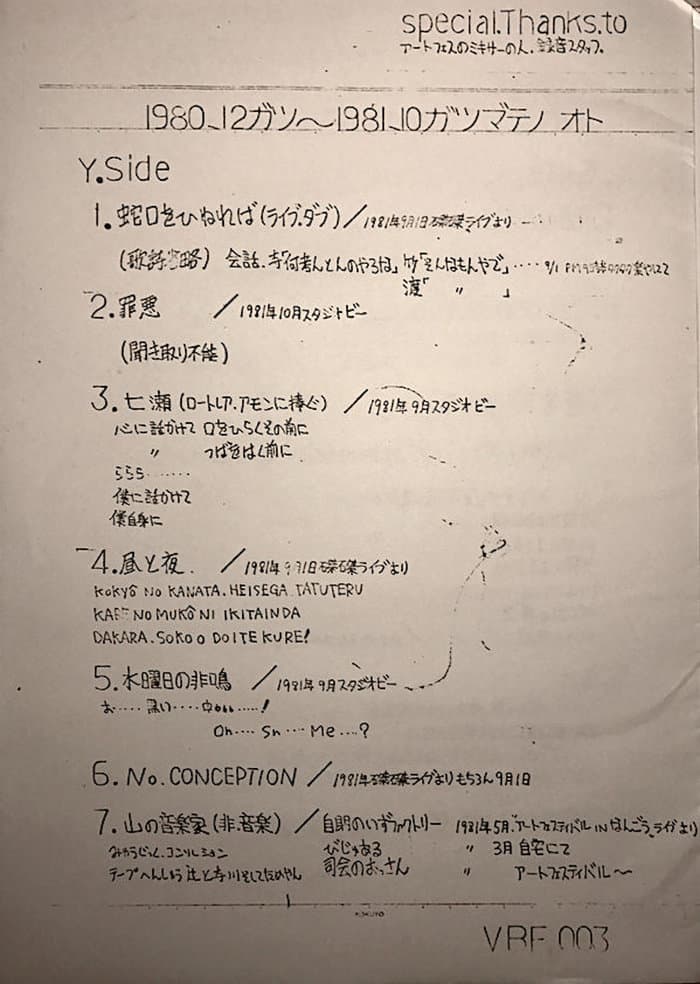 special.Thanks.to
アートフェスのミキサーの人、録音スタッフ。
1980、12ガツ〜1981、10ガツマデノ オト
Y.Side
1. 蛇口をひねれば(ライブ.ダブ) / 1981年9月1日磔磔ライブより
(歌詩省略) 会話、寺「何考えとんのやろね」竹「そんなもんやで」‥‥ 9/1 PM
渡「 〃 」
2. 罪悪 / 1981年10月スタジオビー
(聞き取り不能)
3. 七瀬 (ロートレア.アモンに捧ぐ) / 1981年9月スタジオビー
心に話かけて 口をひらくその前に
〃 つばをはく前に
ららら‥‥‥
僕に話かけて
僕自身に
4. 昼と夜. / 1981年9月1日磔磔ライブより
KOKYÔ NO KANATA. HEISEGA TATUTERU
KABE NO MUKÔ NI IKITAINDA
DAKARA. SOKO O DOITE KURE!
5. 水曜日の非鳴 / 1981年9月スタジオビー
お‥‥ 黒い‥‥ ‥‥!
On‥‥ Sn‥‥ Me‥‥?
6. No. CONCEPTION / 1981年磔磔ライブより もちろん9月1日
7. 山の音楽家(非.音楽) / 自閉のいずファクトリー 1981年5月.アートフェスティバル IN なんごう ライブより
みゅうじっく.コンクレション びじゅある 〃 3月 自宅にて
テープへんしゅう 辻と寺川そして 司会のおっさん 〃 アートフェスティバル〜
KOKUYO
VBF 003